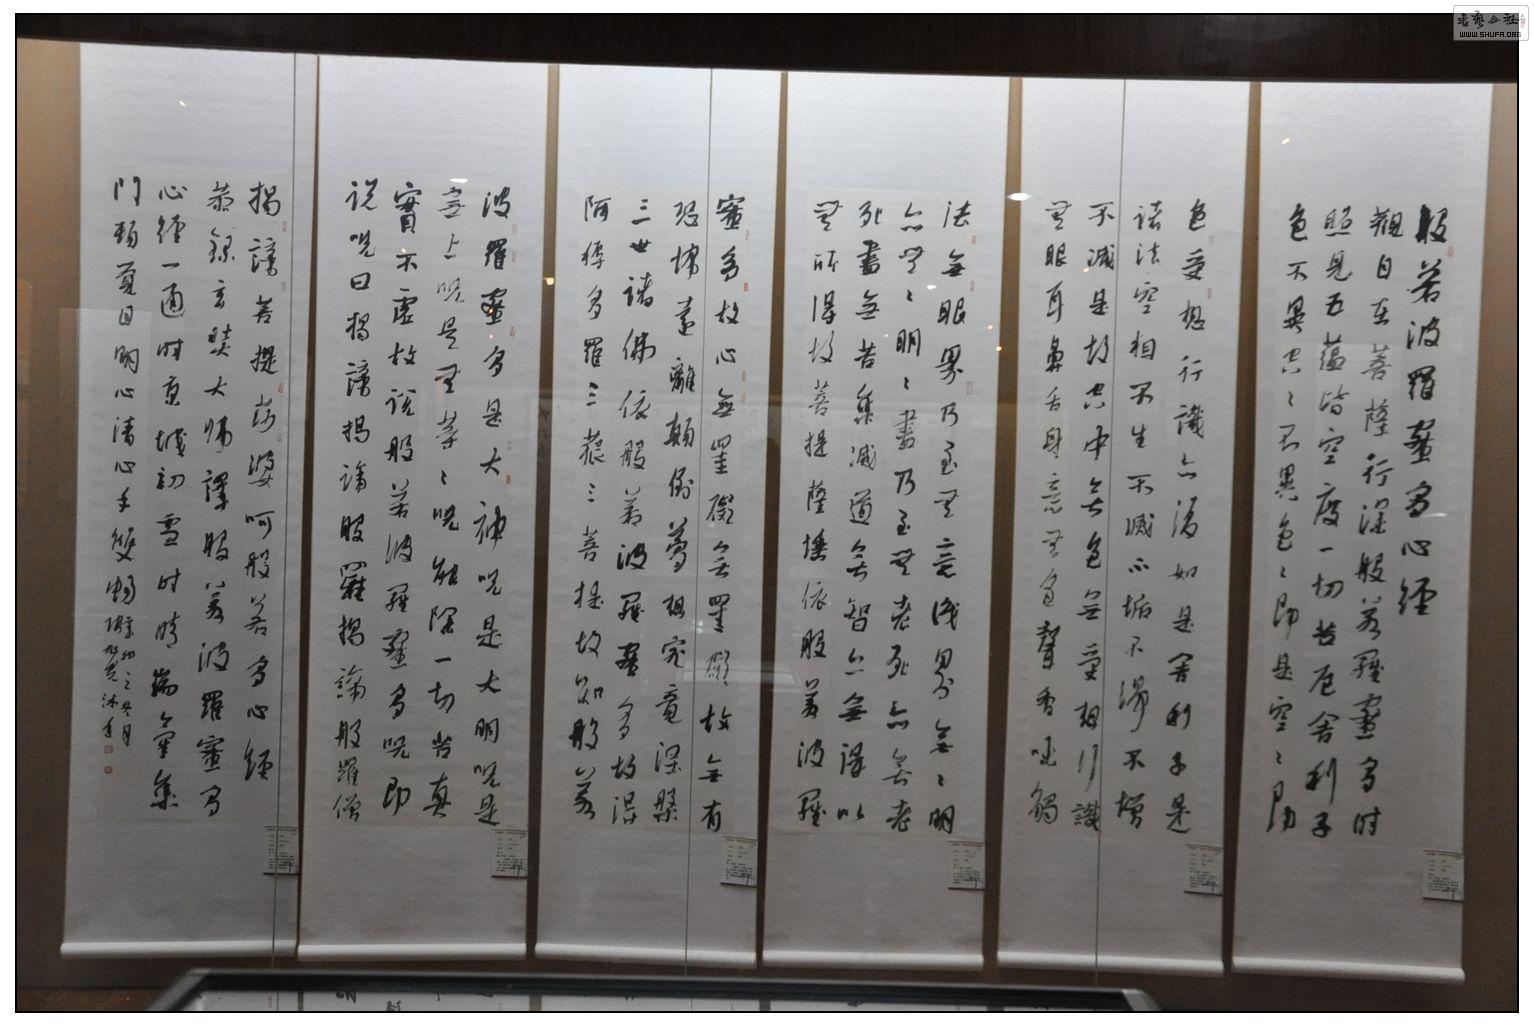 般若波羅蜜多心經
觀自在菩薩行深般若羅蜜多時
照見五蘊皆空度一切苦厄舍利子
色不異空々不異色々即是空々即
色受想行識亦復如是舍利子是
諸法空相不生不滅不垢不淨不增
不減是故空中無色無受想行識
無眼耳鼻舌身意無色聲香味觸
法無眼界乃至無意識界無々明
亦無々明々盡乃至無老死亦無老
死盡無苦集滅道無智亦無得以
無所得故菩提薩埵依般若波羅
蜜多故心無罣礙無罣礙故無有
恐怖遠離顛倒夢想究竟涅槃
三世諸佛依般若波羅蜜多故得
阿耨多羅三藐三菩提故知般若
波羅蜜多是大神咒是大明咒是
無上咒是無等々咒能除一切苦真
實不虛故說般若波羅蜜多咒即
說咒曰揭諦揭諦般羅揭諦般羅僧
揭諦菩提莎婆呵般若多心經
恭錄玄奘大師譯般若波羅蜜多
心經一通時京城初雪時晴端坐集
門頓覺目明心清心手雙暢
之冬月
沐手
書藝公社
WWW.SHUFA.ORG